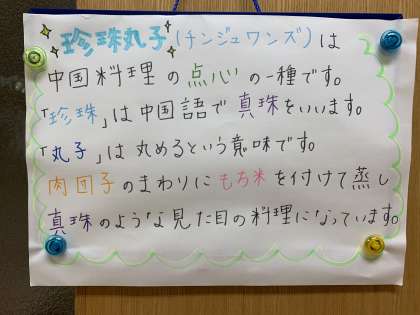 珍珠丸子(チンジュワンズ)は
中国料理の点心の一種です。
「珍珠」は中国語で真珠をいいます。
「丸子」は丸めるという意味です。
肉団子のまわりにもち米を付けて蒸し
真珠のような見た目の料理になっています。